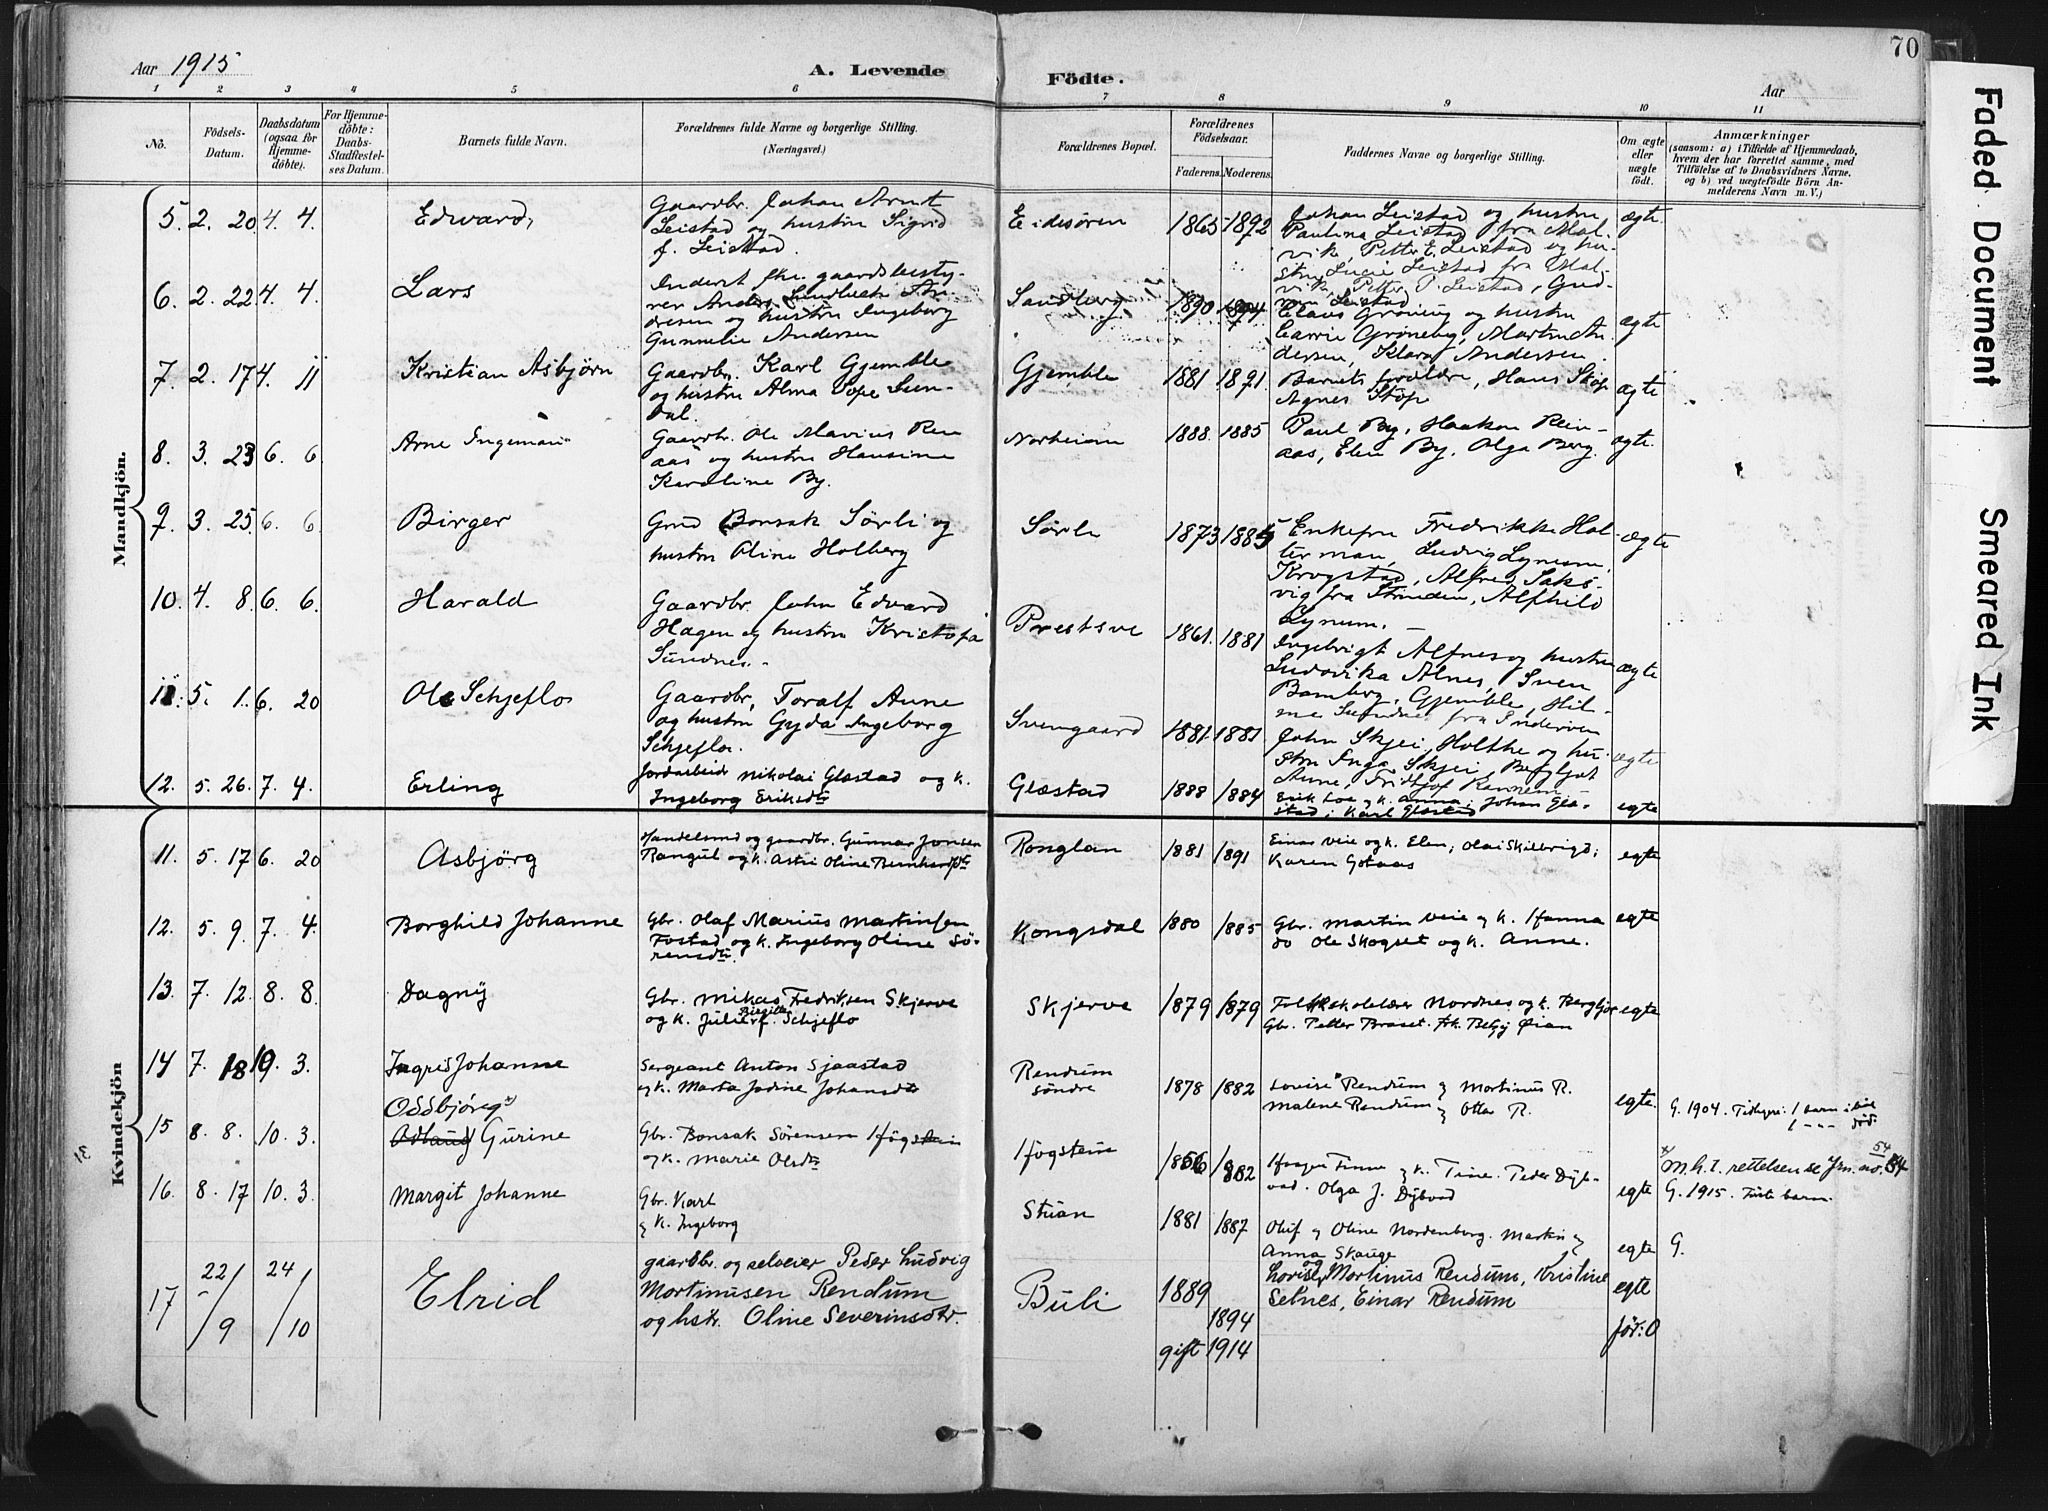 70
Aar 1915
A. Levende
Födte.
Aar
1 2 3 4 5 6 7 8 9 10 11
No.
Födsels-
Datum.
Daabsdatum
(ogsaa for
Hjemme-
döbte).
For Hjemme-
döbte:
Daabs-
Stadfæstel-
ses Datum.
Barnets fulde Navn.
Forældrenes fulde Navne og borgerlige Stilling.
(Næringsvei.)
Forældrenes Bopæl.
Forældrenes
Födselsaar.
Faderens. Moderens.
Faddernes Navne og borgerlige Stilling.
Om ægte
eller
uægte
födt.
Anmærkninger
(saasom: a) i Tilfælde af Hjemmedaab,
hvem der har forrettet samme, med
Tilföielse af to Daabsvidners Navne,
og b) ved uægtefödte Börn An-
melderens Navn m. V.)
Mandkjön.
5. 2. 20 4. 4. Edvard,
Gaardbr. Johan Arnt
Leistad og hustru Sigrid
f. Leistad.
Eidesören 1865 1892
Johan Leistad og hustru
Paulina Leistad fra Mal-
vik, Petter E. Leistad og hu-
stru Lucie Leistad fra Mal-
vik, Petter P. Leistad, Gud-
run Leistad
ægte
6. 2. 22 4. 4. Lars
Inderst fhv. gaardsbesty-
rer Anders Sundbuck An-
dresen og hustru Ingeborg
Gunnelie Andersen
Sandberg 1890 1894
Claus Gröning og hustru
Martin An-
dersen, Klara Andersen.
ægte
7. 2. 17 4. 11 Kristian Asbjørn
Gaardbr. Karl Gjemble
og hustru Alma Sope Sun-
dal.
Gjemble 1881 1891.
Barnets forældre, Hans Stop
Agnes Stop
ægte
8. 3. 23 6. 6. Arne Ingeman
Gaardbr. Ole Marius Ren
aas og hustru Hansine
Karoline By.
Norheim 1888. 1885
Paul By, Haakon Rein-
aas, Elen By, Olga Berg.
ægte.
9. 3. 25. 6. 6. Birger
Grd Bonsak Sörli og
hustru Oline Holberg
Sörli 1873 1885
Enkefru Fredrikke Hol-
terman, Ludvig Lynum,
Krogstad, Alfred Saks-
vig fra Strinden, Alfhild
Lynum.
ægte
10. 4. 8. 6. 6. Harald
Gaardbr. John Edvard
Hagen og hustru Kristofa
Sundnes.
Prestsve 1861. 1881
Ingebrigt Alfnes og hustru
Ludovika Alnes, Sven
Bamberg, Gjemble, Hil-
ma Sundnes fra Inderøen
ægte
11. 5. 1. 6. 20 Ole Schjeflo
Gaardbr. Toralf Aune
og hustru Gyda Ingeborg
Schjeflo.
Svengaard 1881. 1881
John Skjei, Holthe og hu-
stru Inga Skjei, Bergljot
Aune, Fridtjof Rannem
ægte
12. 5. 26. 7. 4. Erling
Jordarbeidr Nikolai Glæstad og k.
Ingeborg Eriksdtr
Glæstad 1888 1884
Erik Loe og k. Anna; Johan Glæ-
stad; Karl Glæstad
egte
Kvindekjön
11. 5. 17 6. 20 Asbjörg
Handelsmd og gaardbr. Gunnar Jonsen
Rangul og k. Astri Oline Bernhardsdtr
Ronglan 1881 1891
Einar Veie og k. Elen; Olai Skilbrigd;
Karen Gotaas
egte
12. 5. 9. 7. 4. Borghild Johanne
Gbr. Olaf Marius Martinsen
Fostad og k. Ingeborg Oline Sö-
rensdtr.
Kongsdal 1880 1885
Gbr. Martin Veie og k. Hanna
do Ole Skogset og k. Anne.
egte
13. 7. 12. 8. 8. Dagny
Gbr. Mikas Fredriksen Skjerve
og k. Julie Birgitte f. Schjeflo
Skjerve 1879 1879
Folkeskolelærer Nordnes og k. Bergljot
Gbr. Petter Braset. Frk. Betzy Øian
egte
14 7. 18 19. 3. Ingrid Johanne
Sergeant Anton Sjaastad
og k. Marta Jodine Johansdtr
Rendum
söndre 1878 1882
Lovise Rendum og Mortinus R.
Malene Rendum og Otter R.
egte.
G. 1904. Tidligre: 1 barn i live
1 - " - död.
15 8. 8. 10. 3. Oddbjörg x)
Gurine
Gbr. Bonsak Sörensen Högstein
og k. Marie Olsdtr
Högstein 1856 1882
Haagen Finne og k. Tine. Peder Dyb-
vad. Olga J. Dybvad
egte
x) M.h.t. rettelsen se Jrn. no. 54
G. 1915. Första barn.
16. 8. 17 10. 3. Margit Johanne
Gbr. Karl
og k. Ingeborg
Stuan 1881 1887
Oluf og Oline Nordenborg. Martin og
Anna Skauge
egte G.
17 22/9 24/10 Elrid
gaardbr. og selveier Peder Ludvig
Mortinusen Rendum
og hstr. Oline Severinsdtr.
Buli 1889
1894
gift 1914
Lovise og Mortinus Rendum, Kristine
Selnes, Einar Rendum
egte
för: 0
Faded Document
Smeared Ink